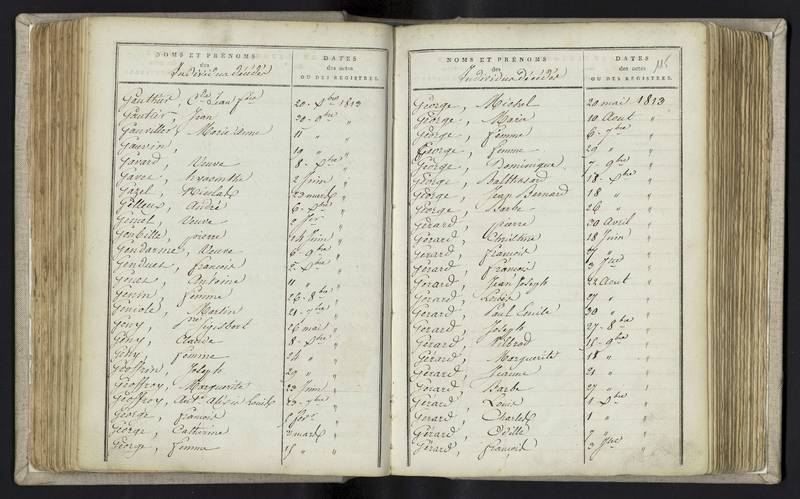 NOMS ET PRÉNOMS
des
Individus décédés
DATES
des actes
OU DES REGISTRES.
Gauthier, Jean
20 - Xbre 1813
Gautier, Jean
30 - 9bre "
Gauvillet, Marie Anne
11 " "
Gauvin,
19 " "
Gavard, Veuve
8 - Xbre "
Gavet, hyacinthe
2 Juin "
Gazel, Nicolas
23 mars "
Gelleux, André
6 - "
Genet, Veuve
Genbille, pierre
14 Juin "
Gendarme, Veuve
6 - 9bre "
Genduet, françois
2 - "
Antoine
11 "
Genin, femme
26 - 8bre "
Geniole, Martin
21 - "
Geny,
26 mai "
Geny, Claude
8 - "
Geny, femme
24 " "
Geoffrin, Joseph
29 " "
Geoffroy, Marguerite
23 Juin "
Geoffroy,
George, françois
George, Catherine
2 mars "
George, femme
15 " "
NOMS ET PRÉNOMS
des
Individus décédés
DATES
des actes
OU DES REGISTRES.
George, Michel
20 mai 1813
George, Marie
19 Aout "
George, femme
6 - 7bre "
George, femme
29 " "
George, Dominique
7 - 9bre "
George, Balthasard
18 - Xbre "
George, Jean Bernard
18 " "
George, Barbe
26 " "
Gérard, pierre
30 Avril "
Gérard, Christine
18 Juin "
Gérard, françois
Gérard, françois
Gérard, Jean Joseph
22 Aout "
Gérard, Louis
27 " "
Gérard, Paul Emile
30 " "
Gérard, Joseph
27 - 8bre "
Gérard,
15 - 9bre "
Gérard, Marguerite
18 " "
Gérard, Jeanne
21 " "
Gérard, Barbe
27 " "
Gérard, Louis
1 Xbre "
Gérard, Charles
1 " "
Gérard, Odille
Gérard, françois